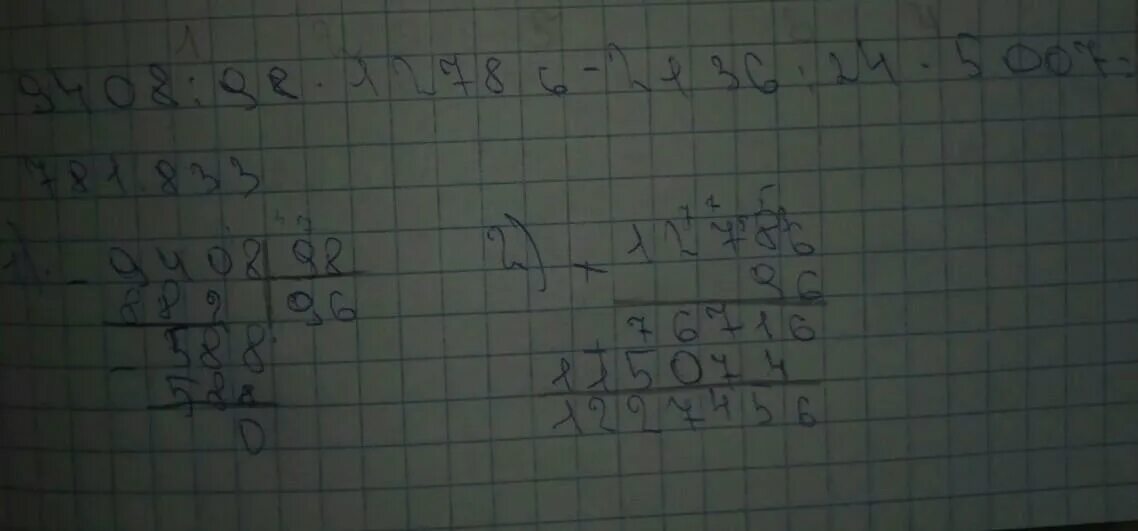 9408:98·12786-2136:24·5007=
781833
1).
- 9408 98
882 96
- 588
588
0
2) × 12786
96
+ 76716
115074
1227456